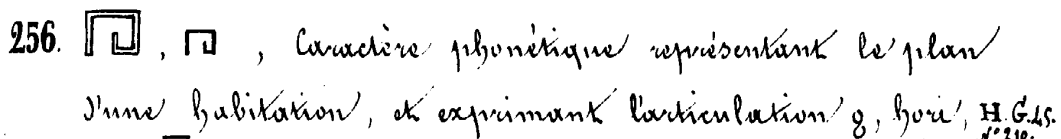 256. 𓉔, 𓉔, Caractère phonétique représentant le plan
d'une habitation, et exprimant l'articulation ϩ, hori, H. G. 45. n° 210.